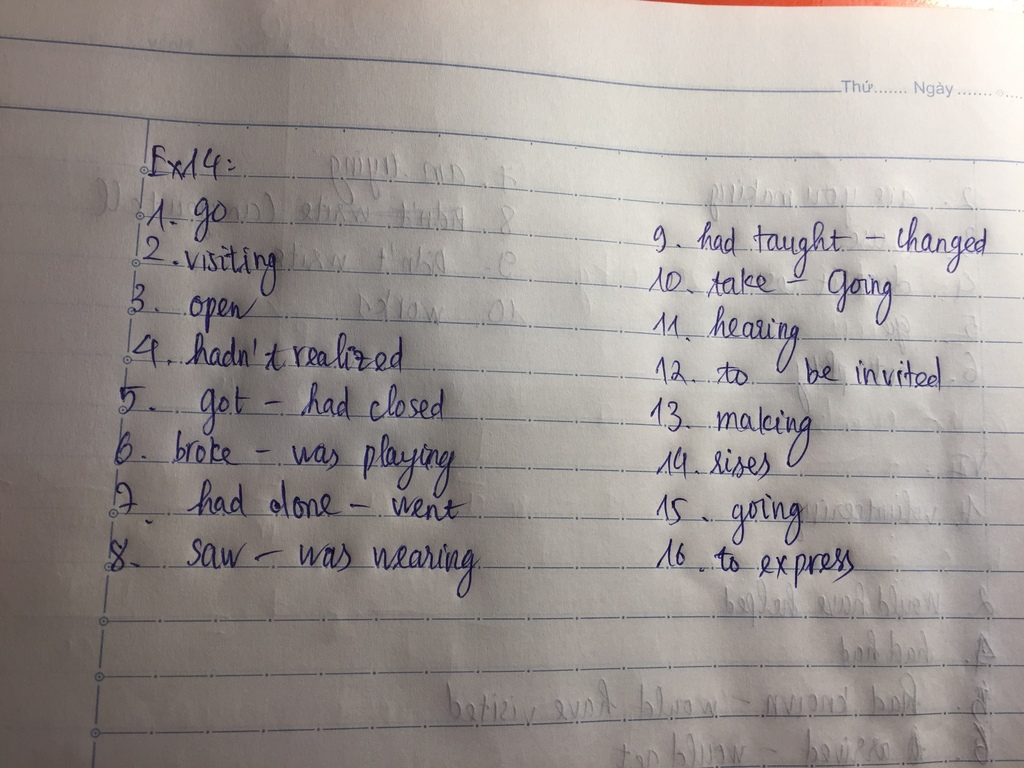 Thứ....... Ngày.......
Ex14:
1. go
2. visiting
3. open
4. hadn't realized
5. got - had closed
6. broke - was playing
7. had done - went
8. saw - was wearing
9. had taught - changed
10. take - going
11. hearing
12. to be invited
13. making
14. rises
15. going
16. to express